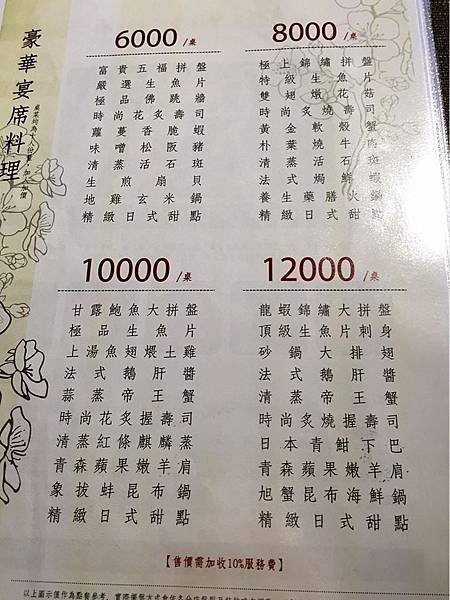 豪華宴席料理
6000 /桌
富貴五福拼盤
嚴選生魚片
極品佛跳牆
時尚花炙壽司
蘿蔓香脆蝦
味噌松阪豬
清蒸活石斑
生煎扇貝
地雞玄米鍋
精緻日式甜點
8000 /桌
極上錦繡拼盤
特級生魚片
雙翅燉花菇
時尚炙燒壽司
黃金軟殼蟹
朴葉燒牛肉
清蒸活石斑
法式焗鮮蝦
養生藥膳火鍋
精緻日式甜點
10000 /桌
甘露鮑魚大拼盤
極品生魚片
上湯魚翅煨土雞
法式鵝肝醬
蒜蒸帝王蟹
時尚花炙握壽司
清蒸紅條麒麟蒸
青森蘋果嫩羊肩
象拔蚌昆布鍋
精緻日式甜點
12000 /桌
龍蝦錦繡大拼盤
頂級生魚片刺身
砂鍋大排翅
法式鵝肝醬
清蒸帝王蟹
時尚炙燒握壽司
日本青魽下巴
青森蘋果嫩羊肩
旭蟹昆布海鮮鍋
精緻日式甜點
【售價需加收10%服務費】
以上圖示僅作為點餐參考，實際擺盤方式會依